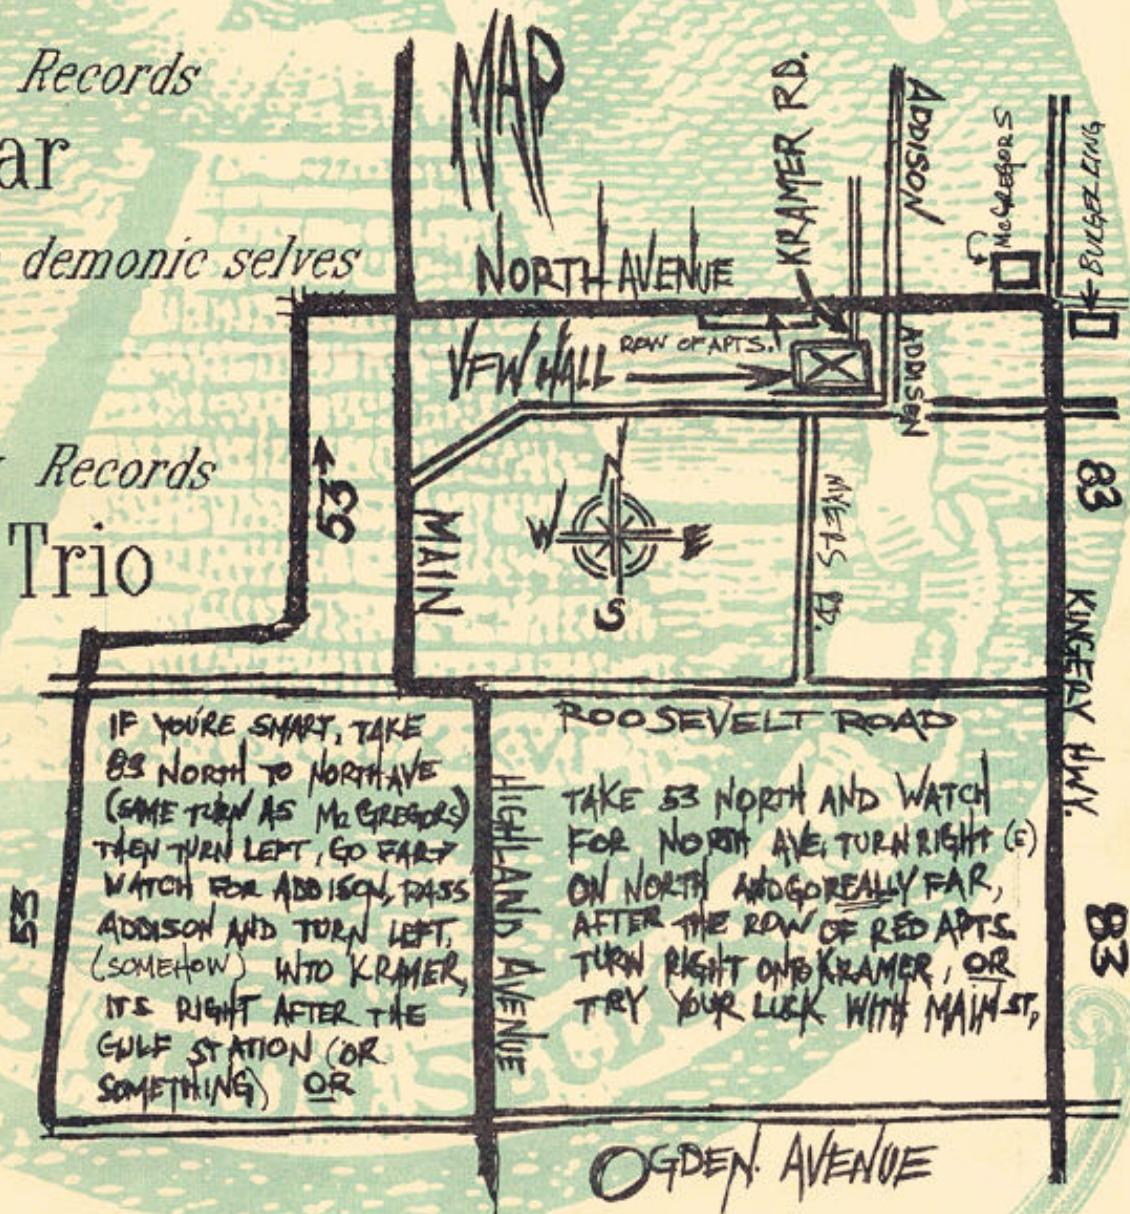 Records
ar
demonic selves
Records
Trio
MAP
KRAMER RD.
ADDISON
McGREGORS
← BURGER KING
NORTH AVENUE
ROW OF APTS.
VFW HALL
ADDISON
53 →
MAIN
W E
S
MYERS RD.
83
KINGERY HWY.
ROOSEVELT ROAD
IF YOU'RE SMART, TAKE
83 NORTH TO NORTH AVE
(SAME TURN AS McGREGORS)
THEN TURN LEFT, GO FAR →
WATCH FOR ADDISON, PASS
ADDISON AND TURN LEFT,
(SOMEHOW) INTO KRAMER,
ITS RIGHT AFTER THE
GULF STATION (OR
SOMETHING) OR
53
HIGHLAND AVENUE
TAKE 53 NORTH AND WATCH
FOR NORTH AVE, TURN RIGHT (E)
ON NORTH AND GO REALLY FAR,
AFTER THE ROW OF RED APTS.
TURN RIGHT ONTO KRAMER, OR
TRY YOUR LUCK WITH MAIN ST,
83
OGDEN. AVENUE